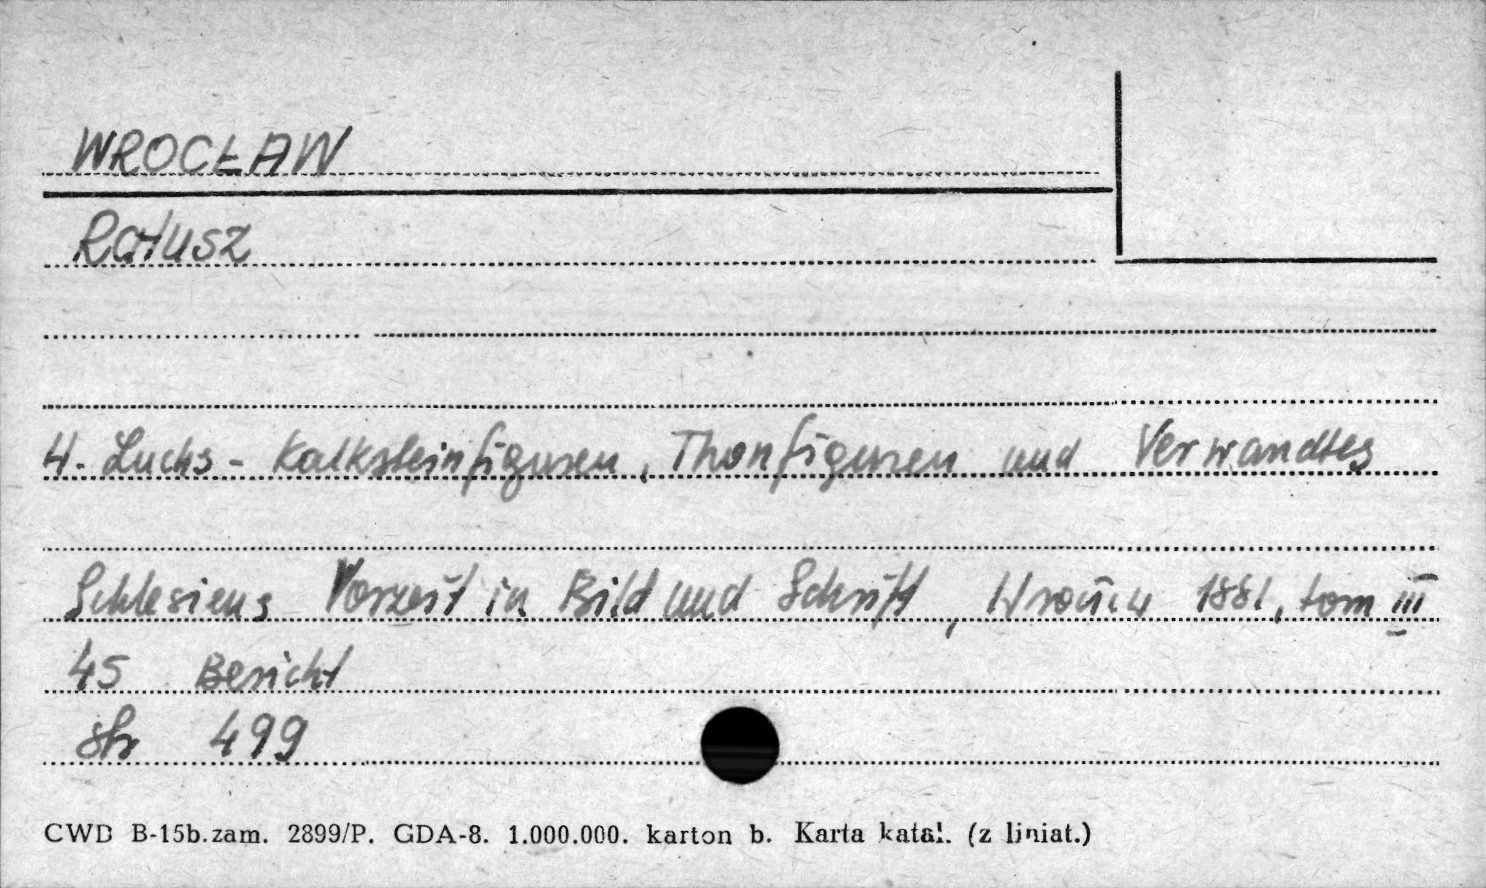 WROCŁAW
Ratusz
H. Luchs - Kalksteinfiguren, Thonfiguren und Verwandtes
Schlesiens Vorzeit in Bild und Schrift, 1881, tom III
45 Bericht
str 499
CWD B-15b.zam. 2899/P. GDA-8. 1.000.000. karton b. Karta katal. (z liniat.)